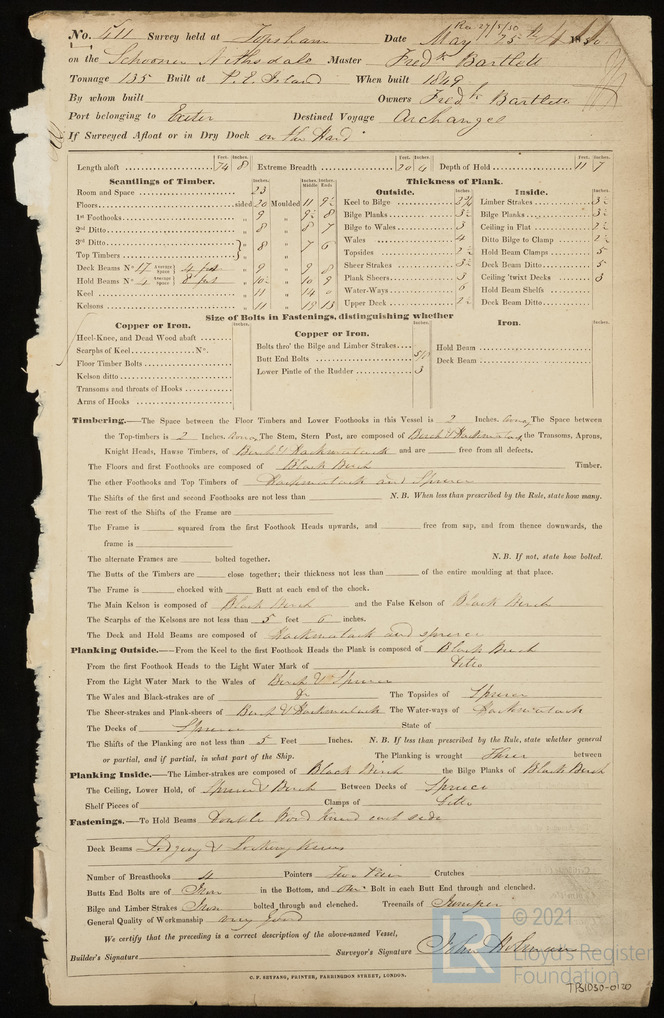 No. 511 Survey held at Topsham Date May 25th 1850
Rec 27/5/50
on the Schooner Nithsdale Master Fredk Bartlett
Tonnage 135 Built at P. E. Island When built 1849
By whom built Owners Fredk Bartlett
Port belonging to Exeter Destined Voyage Archangel
If Surveyed Afloat or in Dry Dock on the Hard
Length aloft 74 8 Extreme Breadth 20 4 Depth of Hold 11 7
Feet. Inches. Feet. Inches. Feet. Inches.
Scantlings of Timber. Thickness of Plank.
Inches. Inches. Middle Inches. Ends Outside. Inside.
Room and Space 23 Keel to Bilge Limber Strakes
Floors sided 20 Moulded 11 9½ Bilge Planks Bilge Planks
1st Foothooks „ 9 „ 9½ 8 Bilge to Wales 3 Ceiling in Flat
2nd Ditto „ 8 „ 8 7 Wales 4 Ditto Bilge to Clamp
3rd Ditto Topsides Hold Beam Clamps 5
Top Timbers „ 8 „ 7 6 Sheer Strakes Deck Beam Ditto 5
Deck Beams No. 17 Average Space 4 feet „ 9 „ 9 8 Plank Sheers 3 Ceiling 'twixt Decks 3
Hold Beams No. 4 Average Space 8 feet „ 10½ „ 10 9 Water-Ways 6 Hold Beam Shelfs
Keel „ 11 „ 14 Upper Deck Deck Beam Ditto
Kelsons „ 11 „ 13
Size of Bolts in Fastenings, distinguishing whether
Copper or Iron. Inches. Copper or Iron. Inches. Iron. Inches.
Heel-Knee, and Dead Wood abaft
Scarphs of Keel No. Bolts thro' the Bilge and Limber Strakes Hold Beam
Floor Timber Bolts Butt End Bolts Deck Beam
Kelson ditto Lower Pintle of the Rudder 3
Transoms and throats of Hooks
Arms of Hooks
Timbering.—The Space between the Floor Timbers and Lower Foothooks in this Vessel is 2 Inches. The Space between
the Top-timbers is 2 Inches. The Stem, Stern Post, are composed of Birch & Hackmatack the Transoms, Aprons,
Knight Heads, Hawse Timbers, of Birch & Hackmatack and are free from all defects.
The Floors and first Foothooks are composed of Black Birch Timber.
The other Foothooks and Top Timbers of Hackmatack and Spruce
The Shifts of the first and second Foothooks are not less than N. B. When less than prescribed by the Rule, state how many.
The rest of the Shifts of the Frame are
The Frame is squared from the first Foothook Heads upwards, and free from sap, and from thence downwards, the
frame is
The alternate Frames are bolted together. N. B. If not, state how bolted.
The Butts of the Timbers are close together; their thickness not less than of the entire moulding at that place.
The Frame is chocked with Butt at each end of the chock.
The Main Kelson is composed of Black Birch and the False Kelson of Black Birch
The Scarphs of the Kelsons are not less than 5 feet 6 inches.
The Deck and Hold Beams are composed of Hackmatack and spruce
Planking Outside.—From the Keel to the first Foothook Heads the Plank is composed of Black Birch
From the first Foothook Heads to the Light Water Mark of Ditto
From the Light Water Mark to the Wales of Birch & Spruce
The Wales and Black-strakes are of Do The Topsides of Spruce
The Sheer-strakes and Plank-sheers of Birch & Hackmatack The Water-ways of Hackmatack
The Decks of Spruce State of
The Shifts of the Planking are not less than 5 Feet Inches. N. B. If less than prescribed by the Rule, state whether general
or partial, and if partial, in what part of the Ship. The Planking is wrought Three between
Planking Inside.—The Limber-strakes are composed of Black Birch the Bilge Planks of Black Birch
The Ceiling, Lower Hold, of Spruce & Birch Between Decks of Spruce
Shelf Pieces of Clamps of Ditto
Fastenings.—To Hold Beams Double Wood Knees each side
Deck Beams Lodging & Locking Knees
Number of Breasthooks 4 Pointers Two Pair Crutches
Butts End Bolts are of Iron in the Bottom, and One Bolt in each Butt End through and clenched.
Bilge and Limber Strakes Iron bolted through and clenched. Treenails of Juniper
General Quality of Workmanship very good
We certify that the preceding is a correct description of the above-named Vessel,
Builder's Signature Surveyor's Signature John Holman
C. F. SEYFANG, PRINTER, FARRINGDON STREET, LONDON.
LR © 2021
Lloyd's Register
Foundation
TPS1030-0120